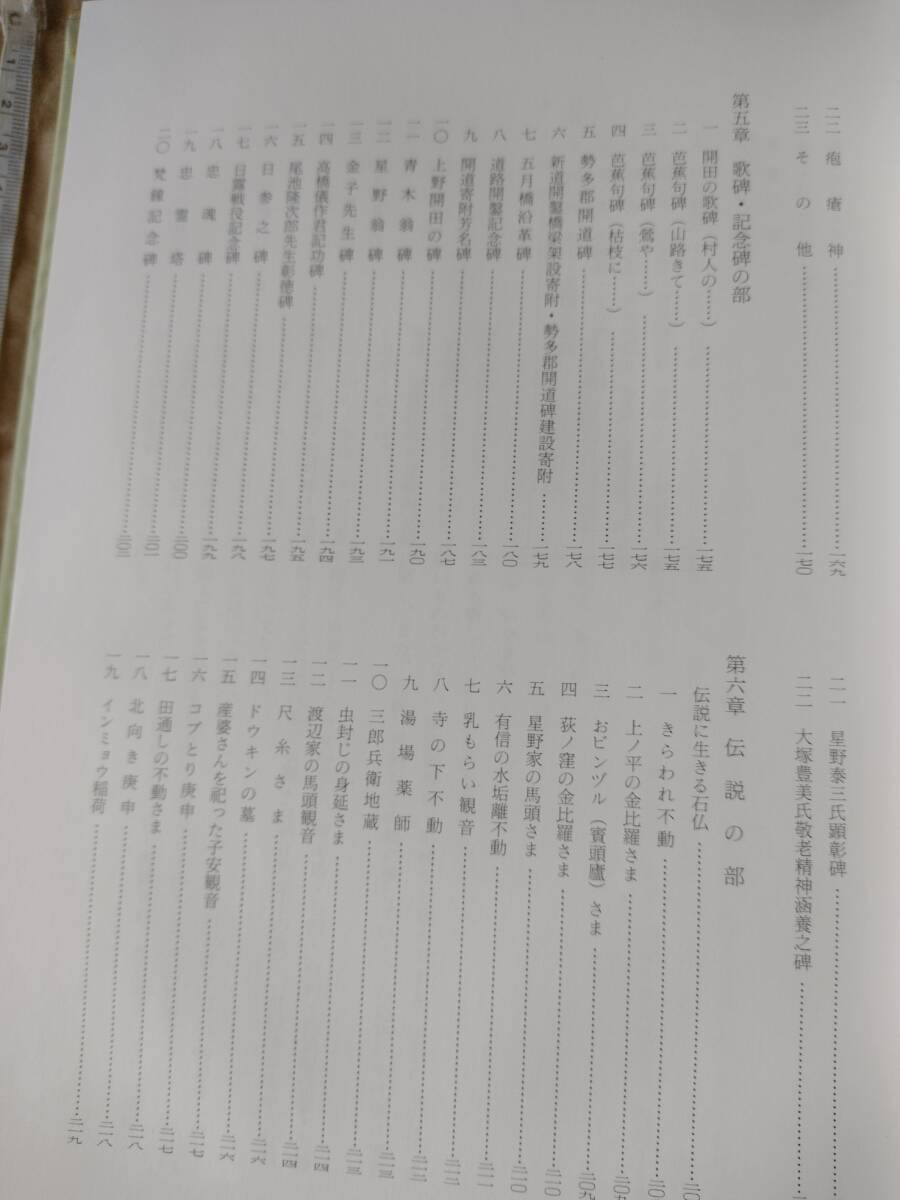 二二 疱瘡神……一六九
二三 その他……一七〇
第五章 歌碑・記念碑の部
一 開田の歌碑（村人の……）……一七五
二 芭蕉句碑（山路きて……）……一七五
三 芭蕉句碑（鶯や……）……一七六
四 芭蕉句碑（枯枝に……）……一七七
五 勢多郡開道碑……一七八
六 新道開鑿橋梁架設寄附・勢多郡開道碑建設寄附……一七九
七 五月橋沿革碑……一八〇
八 道路開鑿記念碑……一八三
九 開道寄附芳名碑……一八七
一〇 上野開田の碑……一九〇
一一 青木翁碑……一九一
一二 星野翁碑……一九三
一三 金子先生碑……一九四
一四 高橋儀作君記功碑……一九五
一五 尾池隆次郎先生彰徳碑……一九七
一六 日参之碑……一九八
一七 日露戦役記念碑……一九九
一八 忠魂碑……二〇〇
一九 忠霊塔……二〇一
二〇 梵鐘記念碑……二〇二
二一 星野泰三氏顕彰碑
二二 大塚豊美氏敬老精神涵養之碑
第六章 伝説の部
伝説に生きる石仏
一 きらわれ不動
二 上ノ平の金比羅さま
三 おビンヅル（賓頭盧）さま……二〇九
四 荻ノ窪の金比羅さま……二一〇
五 星野家の馬頭さま……二一〇
六 有信の水垢離不動……二一一
七 乳もらい観音……二一二
八 寺の下不動……二一二
九 湯場薬師……二一三
一〇 三郎兵衛地蔵……二一三
一一 虫封じの身延さま……二一四
一二 渡辺家の馬頭観音……二一四
一三 尺糸さま……二一六
一四 ドウキンの墓……二一六
一五 産婆さんを祀った子安観音……二一七
一六 コブとり庚申……二一七
一七 田通しの不動さま……二一八
一八 北向き庚申……二一八
一九 インミョウ稲荷……二一九